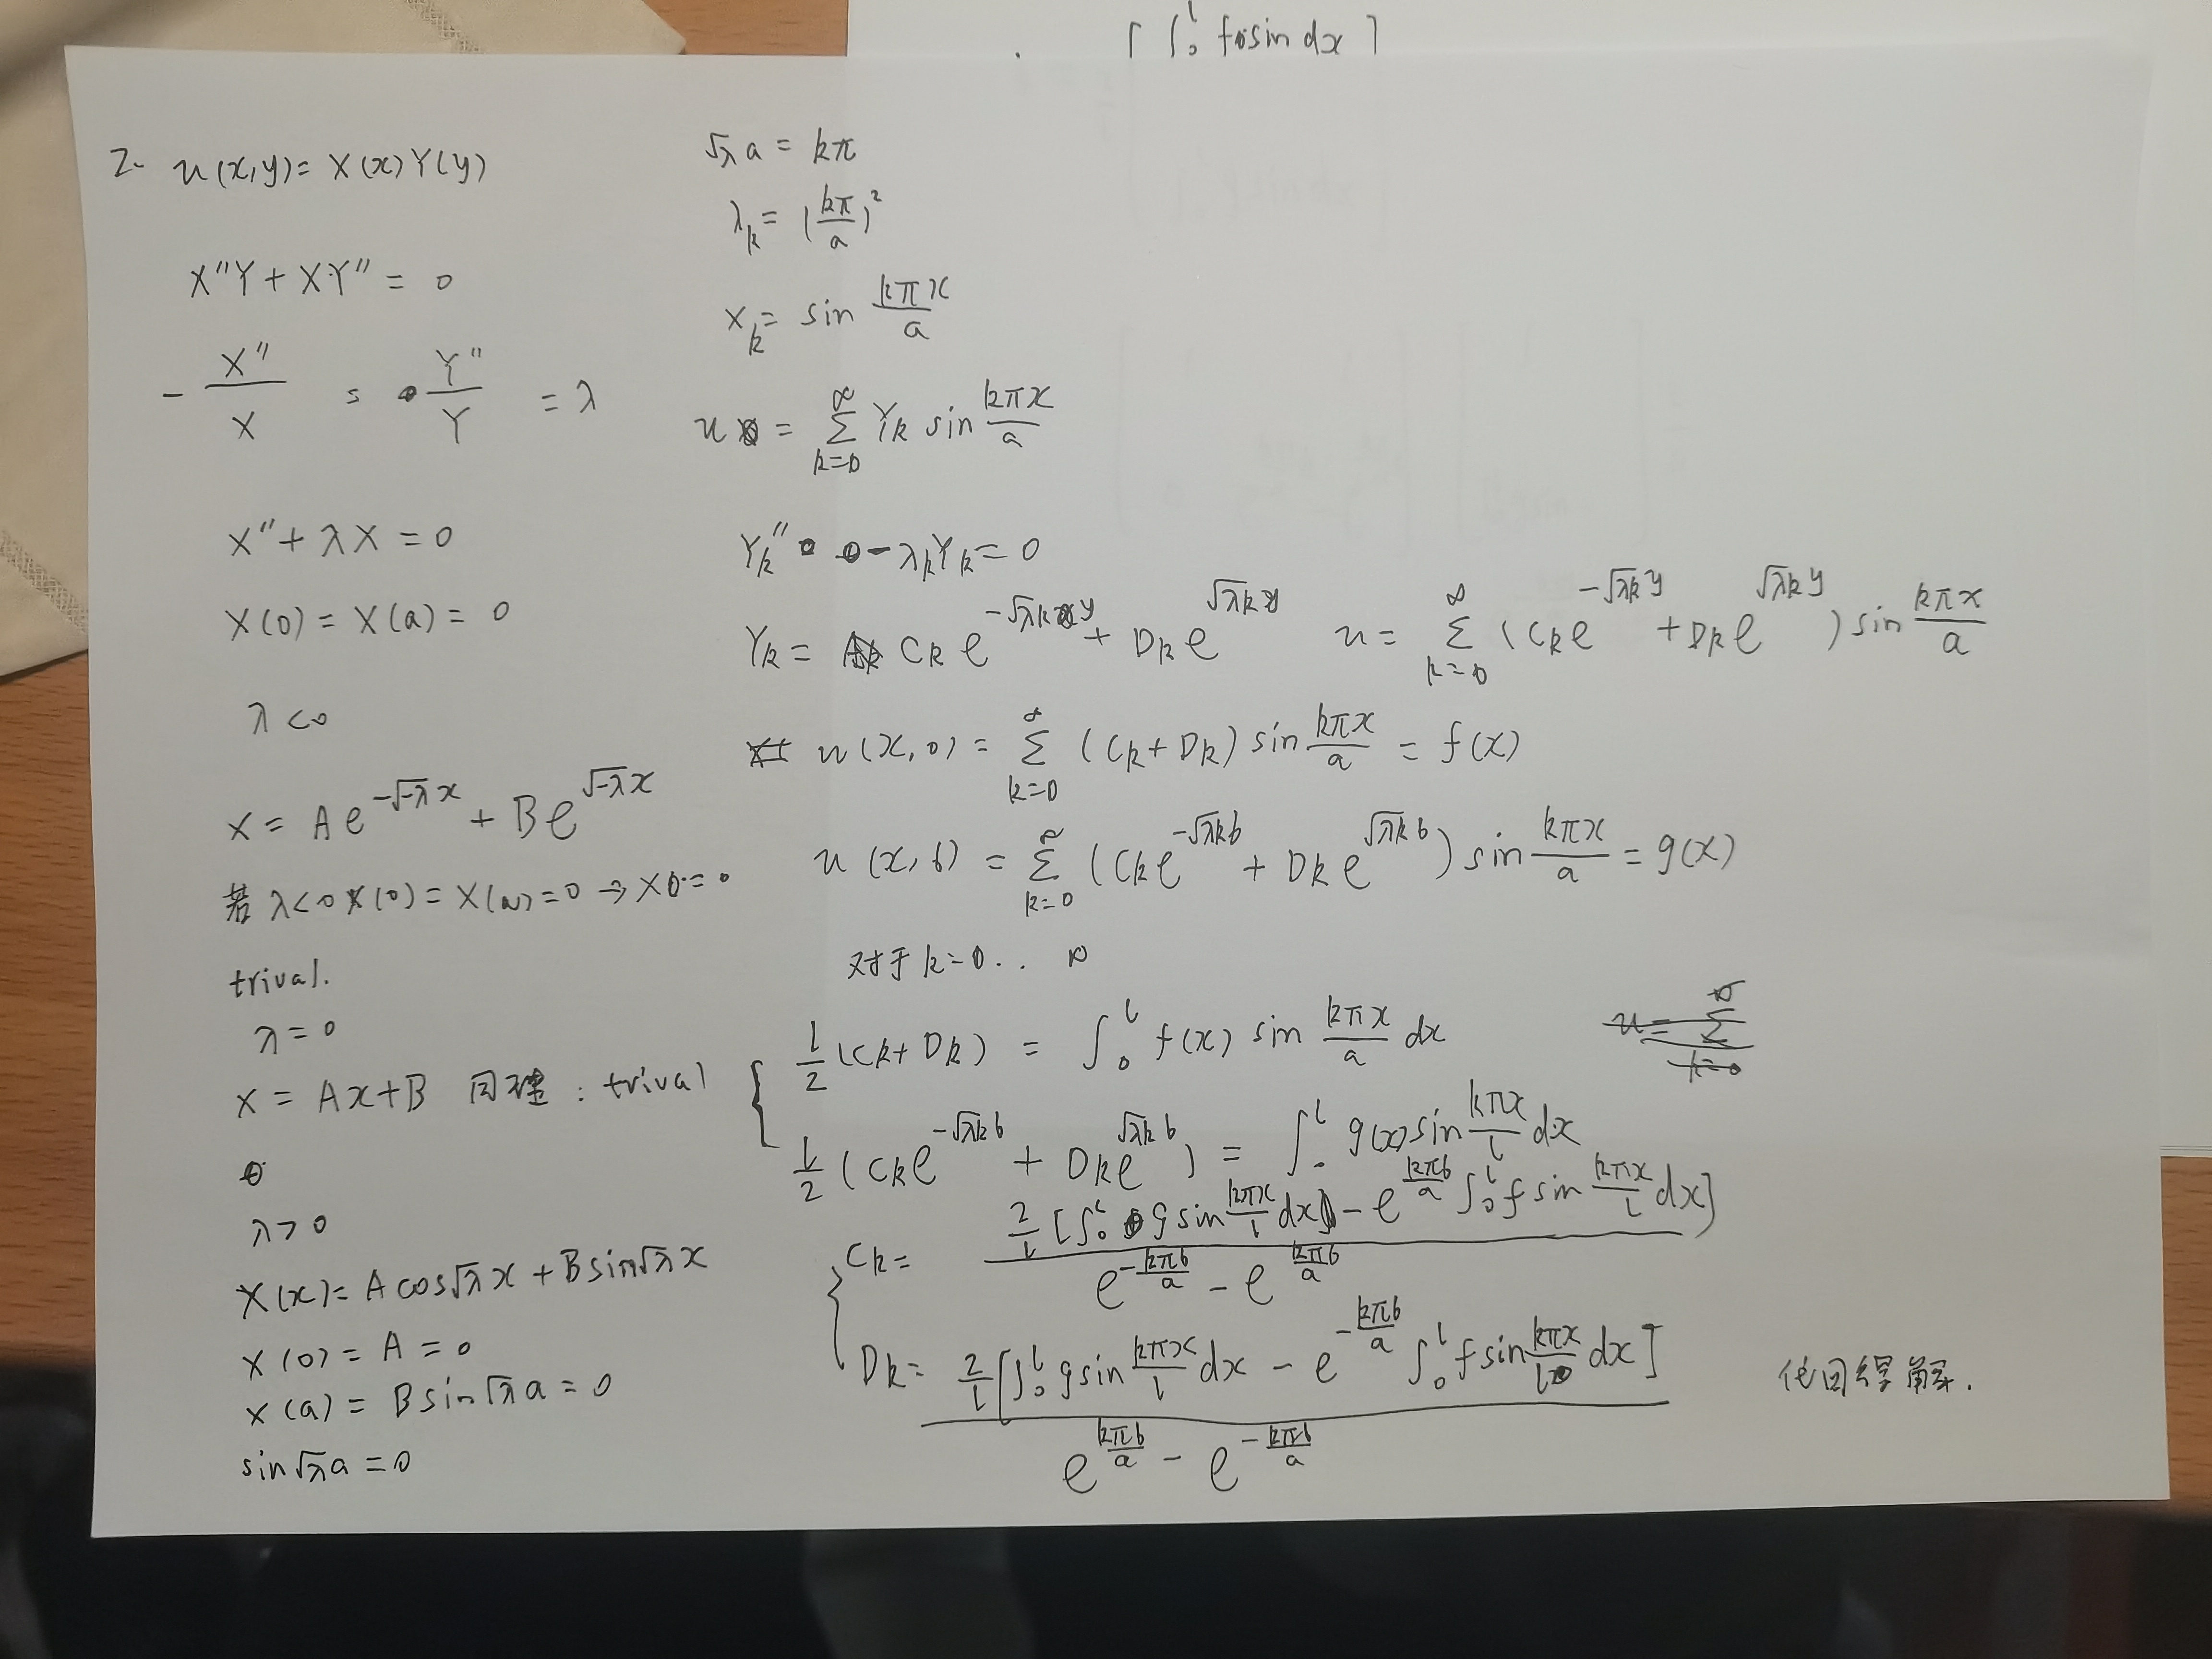 [ ∫₀ˡ f sin dx ]
2. u(x,y)= X(x)Y(y)
X''Y + XY'' = 0
- X''/X = Y''/Y = λ
X'' + λX = 0
X(0) = X(a) = 0
λ<0
X = Ae^{-√-λ x} + Be^{√-λ x}
若 λ<0 X(0) = X(a) = 0 → X = 0
trival.
λ = 0
X = Ax+B 同理 : trival
λ > 0
X(x) = A cos√λ x + B sin√λ x
X(0) = A = 0
X(a) = B sin√λ a = 0
sin√λ a = 0
√λ a = kπ
λ_k = (kπ/a)²
X_k = sin kπx/a
u = Σ_{k=0}^∞ Y_k sin kπx/a
Y_k'' - λ_k Y_k = 0
Y_k = C_k e^{-√λk y} + D_k e^{√λk y} u = Σ_{k=0}^∞ (C_k e^{-√λk y} + D_k e^{√λk y}) sin kπx/a
u(x,0) = Σ_{k=0}^∞ (C_k + D_k) sin kπx/a = f(x)
u(x,b) = Σ_{k=0}^∞ (C_k e^{-√λk b} + D_k e^{√λk b}) sin kπx/a = g(x)
对于 k=0.. ∞
{ l/2 (C_k + D_k) = ∫₀ˡ f(x) sin kπx/a dx
l/2 (C_k e^{-√λk b} + D_k e^{√λk b}) = ∫₀ˡ g(x) sin kπx/l dx
{ C_k = 2/l [∫₀ˡ g sin kπx/l dx - e^{kπb/a} ∫₀ˡ f sin kπx/l dx] / (e^{-kπb/a} - e^{kπb/a})
D_k = 2/l [∫₀ˡ g sin kπx/l dx - e^{-kπb/a} ∫₀ˡ f sin kπx/l dx] / (e^{kπb/a} - e^{-kπb/a})
代回得解.